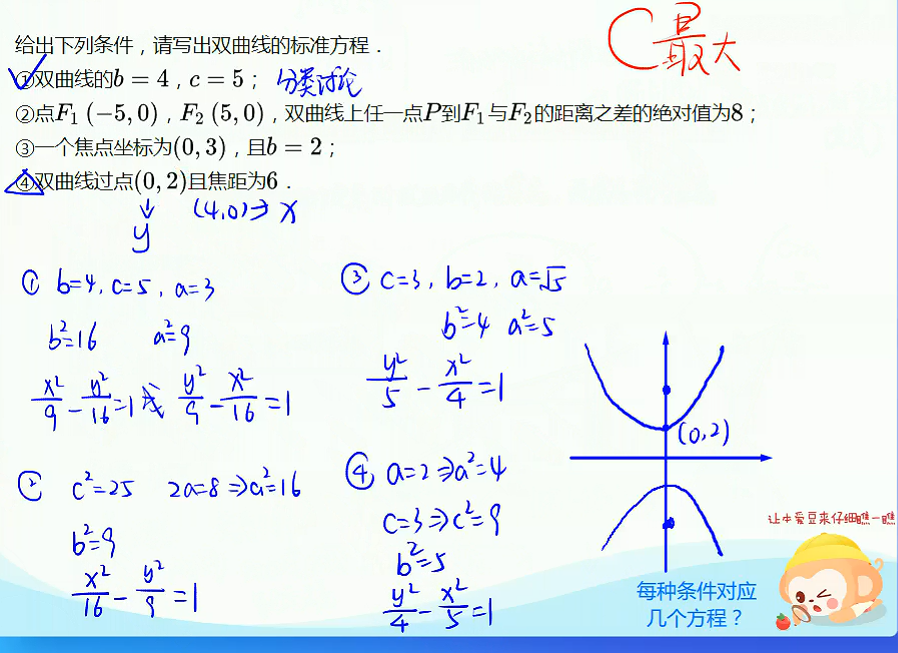 C最大
给出下列条件，请写出双曲线的标准方程．
①双曲线的b = 4，c = 5； 分类讨论
②点F₁ (−5, 0)，F₂ (5, 0)，双曲线上任一点P到F₁与F₂的距离之差的绝对值为8；
③一个焦点坐标为(0, 3)，且b = 2；
④双曲线过点(0, 2)且焦距为6．
↓ (4,0)→ x
y
① b=4, c=5, a=3
b²=16 a²=9
x²/9 − y²/16 =1 或 y²/9 − x²/16 =1
② c²=25 2a=8⇒a²=16
b²=9
x²/16 − y²/9 =1
③ c=3, b=2, a=√5
b²=4 a²=5
y²/5 − x²/4 =1
④ a=2⇒a²=4
c=3⇒c²=9
b²=5
y²/4 − x²/5 =1
(0,2)
让小爱豆来仔细瞧一瞧
每种条件对应
几个方程？